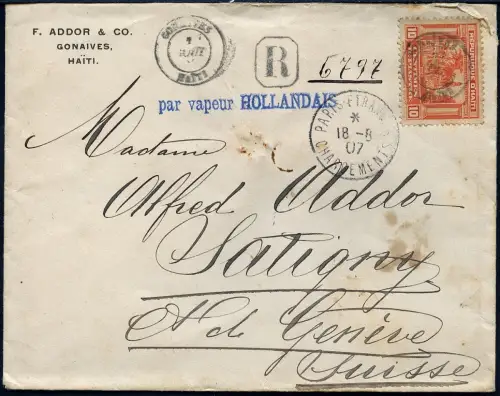 F. ADDOR & CO.
GONAIVES,
HAÏTI.
GONAIVES
HAITI
R
6797
REPUBLIQUE D'HAITI
10 10
par vapeur HOLLANDAIS
PARIS ETRANGER
*
18-8
07
CHARGEMENTS
Madame
Alfred Addor
Satigny
Ct de Genève
Suisse